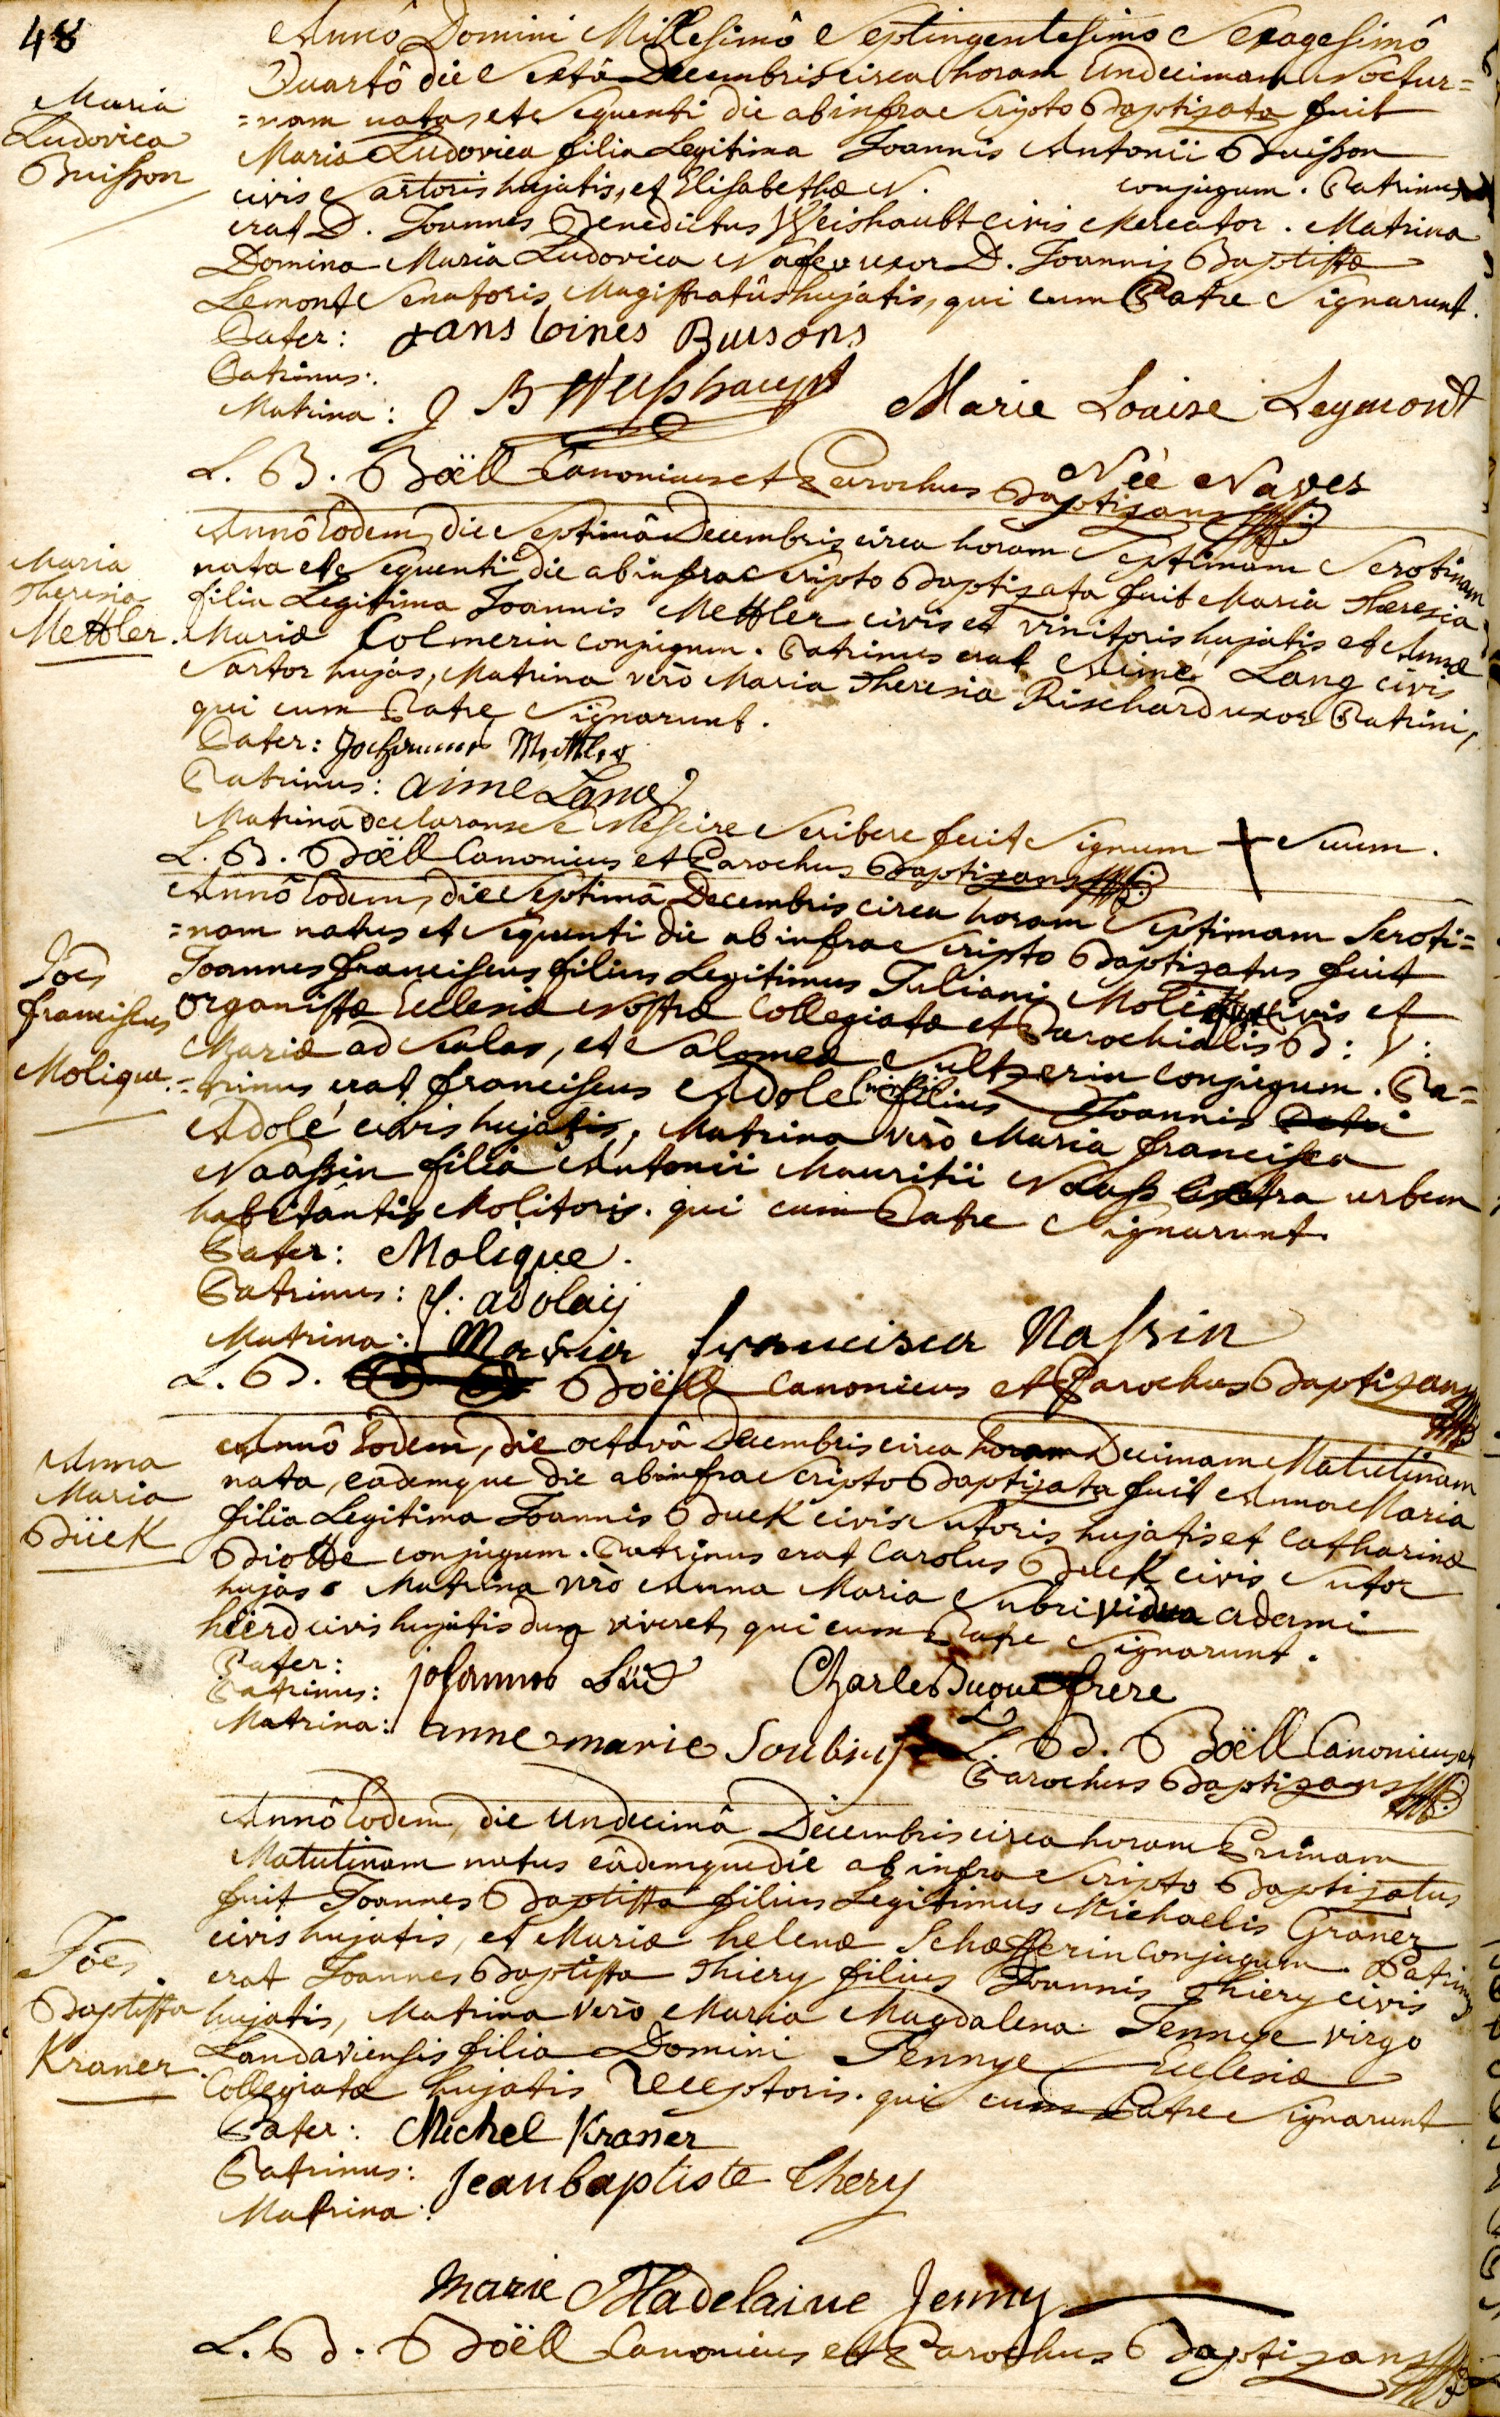 48
Annô Domini Millesimô Septingentesimo Sexagesimô
Quartô die Sextâ Decembris circa horam Undecimam Noctur=
=nam nata, et Sequenti die ab infra Scripto Baptizata fuit
Maria Ludovica filia Legitima Joannis Antonii Buisson
civis Sartoris hujatis, et Elisabethæ N. conjugum. Patrinus
erat D. Joannes Benedictus Weishaubt civis Mercator. Matrina
Domina Maria Ludovica Nafe uxor D. Joannis Baptistæ
Lemont Senatoris Magistratûs hujatis, qui cum Patre Signarunt.
Maria
Ludovica
Buisson
Pater: Buisons
Patrinus:
Matrina: J B Weisshaupt Marie Louise Leymont
Née Naves
L. B. Böell Canonicus et Parochus Baptizans
Annô Eodem, die Septimâ Decembris circa horam Septimam Serotinam
nata et Sequenti die ab infra Scripto Baptizata fuit Maria Theresia
filia Legitima Joannis Mettler civis et vinitoris hujatis et Annæ
Mariæ Colmerin conjugum. Patrinus erat Aimé Lang civis
Sartor hujas, Matrina verò Maria Theresia Rischard uxor Patrini,
qui cum Patre Signarunt.
Maria
Theresia
Mettler.
Pater: Johannes Mettler
Patrinus: aime Lang
Matrina declarans se Nescire Scribere fecit Signum + Suum.
L. B. Böell Canonicus et Parochus Baptizans
Annô Eodem, die Septimâ Decembris circa horam Septimam Seroti=
=nam natus et Sequenti die ab infra Scripto Baptizatus fuit
Joannes franciscus filius Legitimus Juliani Molique civis et
Organistæ Ecclesiæ Nostræ Collegiatæ et Parochialis B: V:
Mariæ ad Scalas, et Salomeæ Sultzerin conjugum. Pa=
=trinus erat franciscus Adole filius Joannis
Adolé civis hujatis, Matrina verò Maria francisca
Naassin filia Antonii Mauritii Naass Extra urbem
habitantis Molitoris. qui cum Patre Signarunt.
Joēs
franciscus
Molique.
Pater: Molique.
Patrinus: f: adolaij
Matrina: Maria francisca Nassin
L. B. Böell Canonicus et Parochus Baptizans
Annô Eodem, die octavâ Decembris circa horam Decimam Matutinam
nata, eademque die ab infra Scripto Baptizata fuit Anna Maria
filia Legitima Joannis Buek civis Sutoris hujatis et Catharinæ
Biotte conjugum. Patrinus erat Carolus Buek civis Sutor
hujas. Matrina verò Anna Maria Subri vidua Adami
heërd civis hujatis dum viveret, qui cum Patre Signarunt.
Anna
Maria
Büek
Pater: johannes
Patrinus: Charle frere
Matrina: anne marie
L. B. Böell Canonicus et
Parochus Baptizans
Annô Eodem, die Undecimâ Decembris circa horam Primam
Matutinam natus eâdemque die ab infra Scripto Baptizatus
fuit Joannes Baptista filius Legitimus Michaelis Graner
civis hujatis, et Mariæ helenæ Schæfferin conjugum. Patrinus
erat Joannes Baptista Thiery filius Joannis Thiery civis
hujatis, Matrina Verò Maria Magdalena Jennye virgo
Landaviensis filia Domini Jennye Ecclesiæ
Collegiatæ hujatis Receptoris. qui cum Patre Signarunt
Joēs
Baptista
Kraner.
Pater: Michel Kraner
Patrinus: Jean baptiste thery
Matrina:
Marie Madelaine Jenny
L. B. Böell Canonicus et Parochus Baptizans